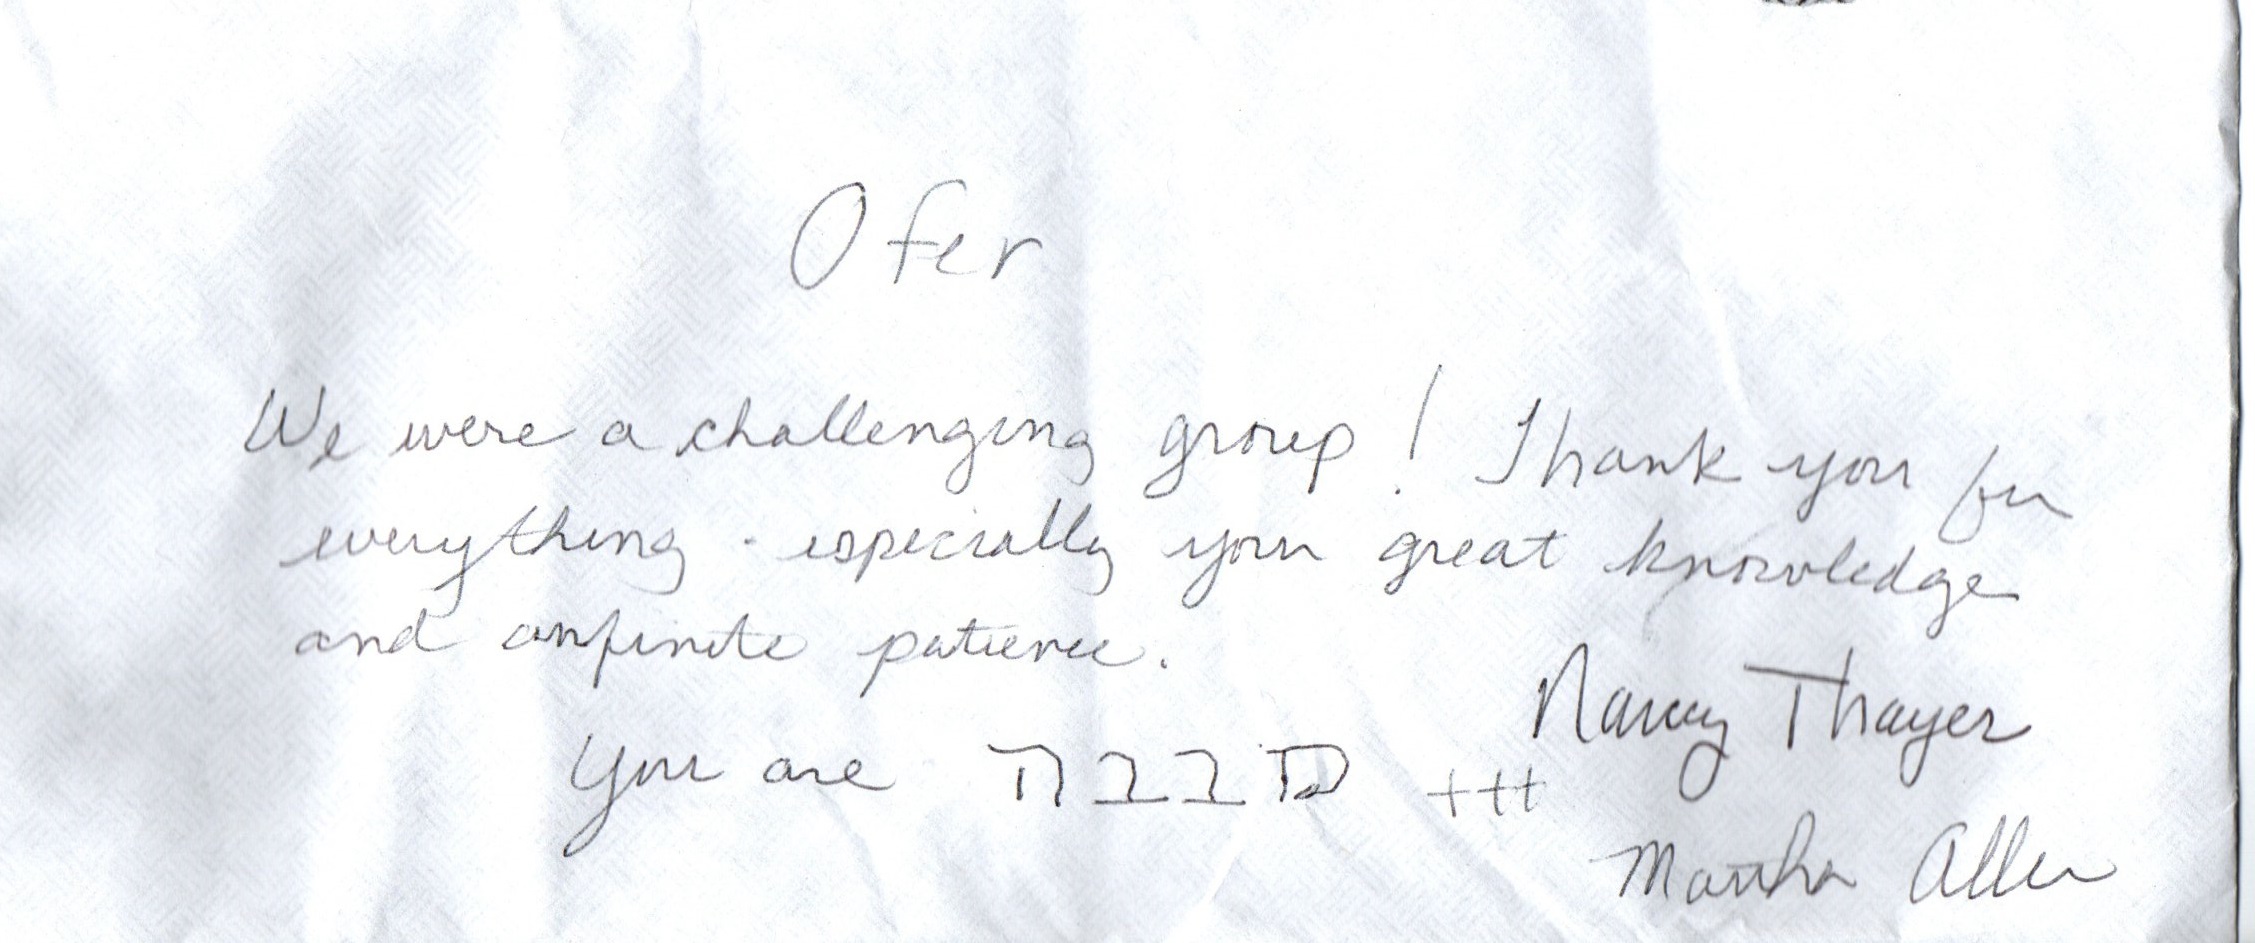 Ofer
We were a challenging group! Thank you for
everything - especially your great knowledge
and infinite patience.
Nancy Thayer
You are +++
Martha Allen